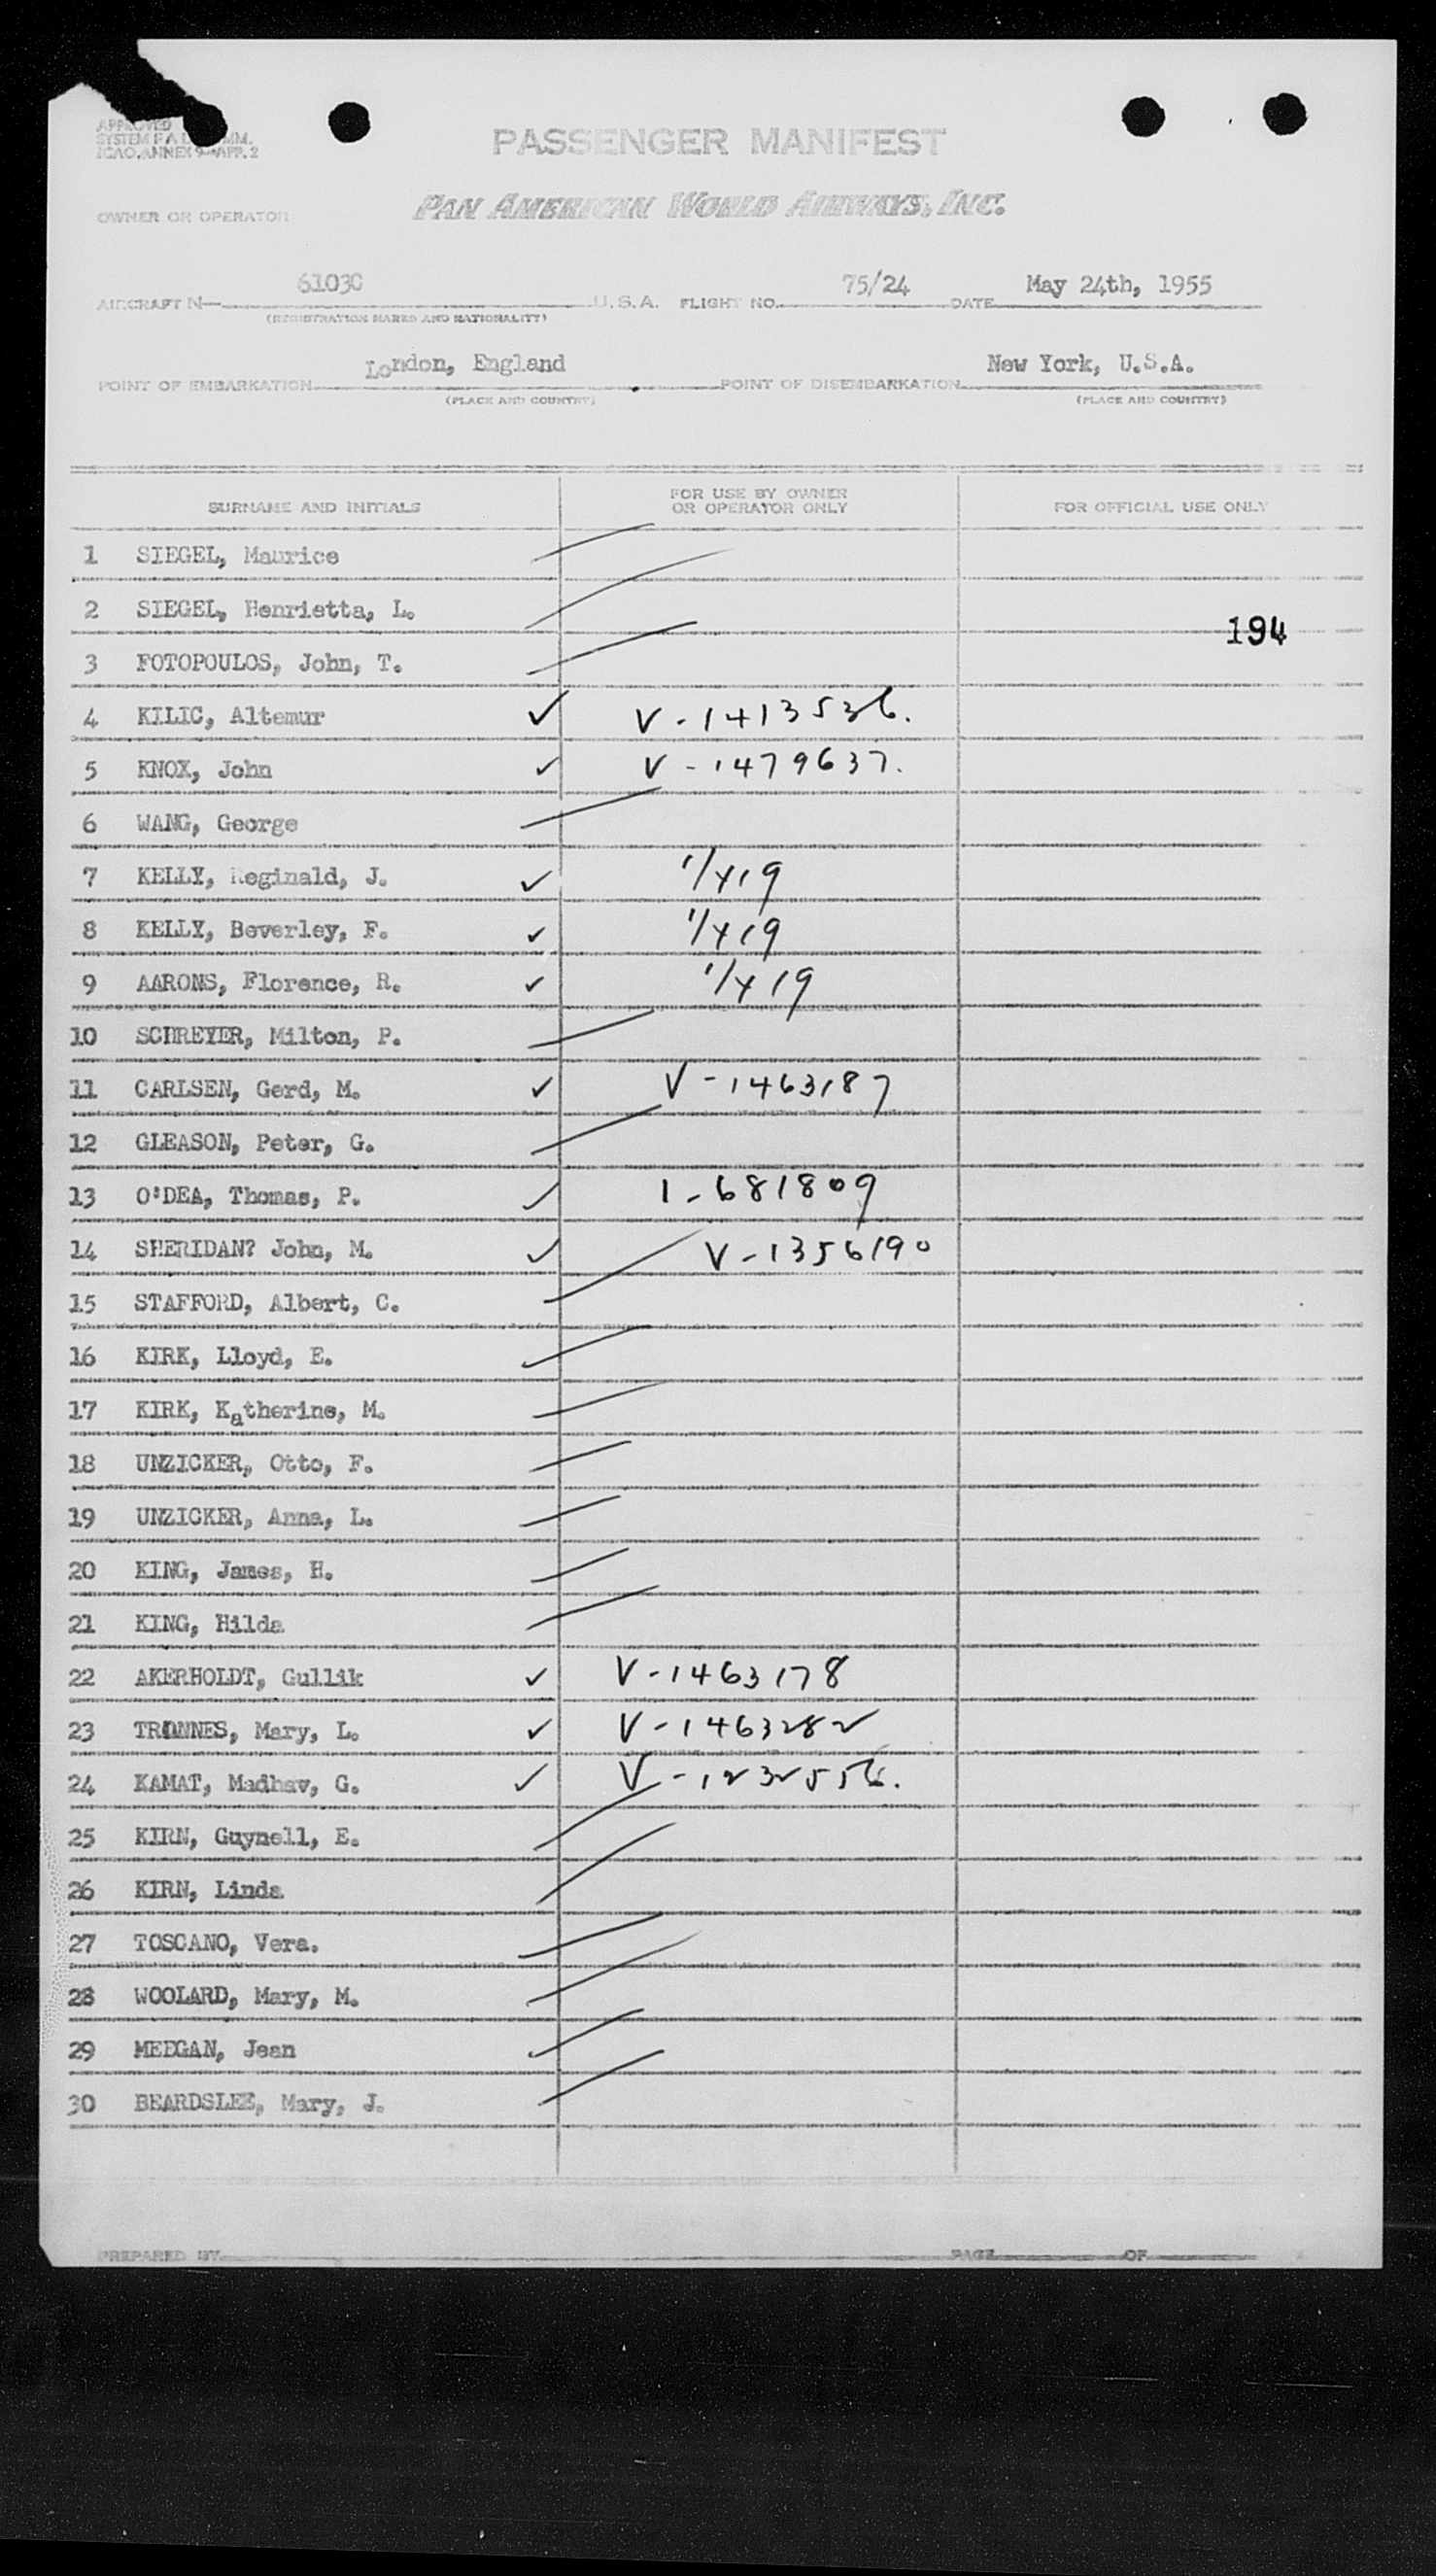 APPROVED
SYSTEM F A L COMM.
ICAO. ANNEX 9-APP. 2
PASSENGER MANIFEST
OWNER OR OPERATOR PAN AMERICAN WORLD AIRWAYS, INC.
AIRCRAFT N— 6103C U.S.A. FLIGHT NO. 75/24 DATE May 24th, 1955
(REGISTRATION MARKS AND NATIONALITY)
POINT OF EMBARKATION London, England POINT OF DISEMBARKATION New York, U.S.A.
(PLACE AND COUNTRY) (PLACE AND COUNTRY)
SURNAME AND INITIALS FOR USE BY OWNER OR OPERATOR ONLY FOR OFFICIAL USE ONLY
1 SIEGEL, Maurice
2 SIEGEL, Henrietta, L.
194
3 FOTOPOULOS, John, T.
4 KILIC, Altemur ✓ V-1413536.
5 KNOX, John ✓ V-1479637.
6 WANG, George
7 KELLY, Reginald, J. ✓
8 KELLY, Beverley, F. ✓
9 AARONS, Florence, R. ✓
10 SCHREYER, Milton, P.
11 CARLSEN, Gerd, M. ✓ V-1463187
12 GLEASON, Peter, G.
13 O'DEA, Thomas, P. ✓ 1-681809
14 SHERIDAN? John, M. ✓ V-1356190
15 STAFFORD, Albert, C.
16 KIRK, Lloyd, E.
17 KIRK, Katherine, M.
18 UNZICKER, Otto, F.
19 UNZICKER, Anna, L.
20 KING, James, H.
21 KING, Hilda
22 AKERHOLDT, Gullik ✓ V-1463178
23 TRONNES, Mary, L. ✓ V-1463282
24 KAMAT, Madhav, G. ✓ V-1232556.
25 KIRN, Guynell, E.
26 KIRN, Linda
27 TOSCANO, Vera.
28 WOOLARD, Mary, M.
29 MEEGAN, Jean
30 BEARDSLEE, Mary, J.
PREPARED BY PAGE OF